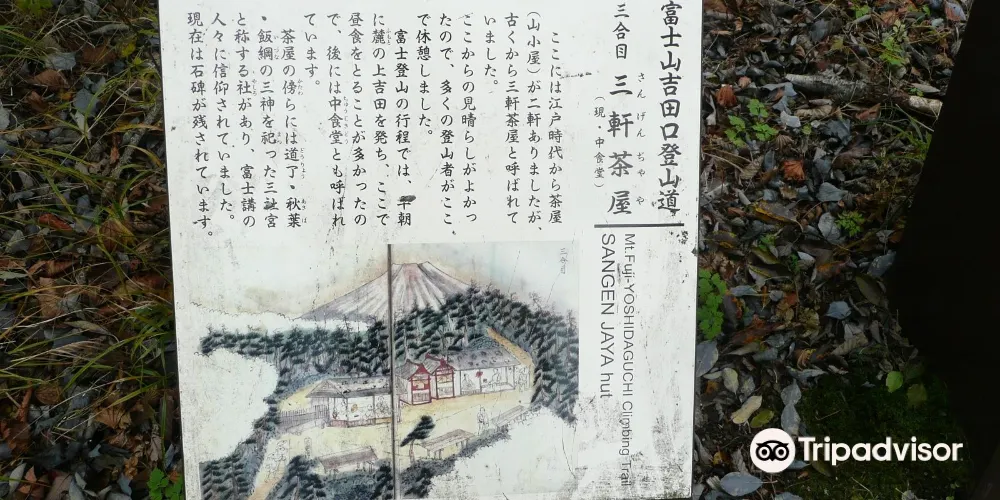 富士山吉田口登山道
三合目 三軒茶屋
さんげんぢゃや
(現・中食堂)
Mt.Fuji-YOSHIDAGUCHI Climbing Trail
SANGEN JAYA hut
ここには江戸時代から茶屋
(山小屋)が二軒ありましたが、
古くから三軒茶屋と呼ばれて
いました。
ここからの見晴らしがよかっ
たので、多くの登山者がここ
で休憩しました。
富士登山の行程では、早朝
に麓の上吉田を発ち、ここで
昼食をとることが多かったの
で、後には中食堂とも呼ばれ
ています。
茶屋の傍らには道了・秋葉
・飯綱の三神を祀った三社宮
と称する社があり、富士講の
人々に信仰されていました。
現在は石碑が残されています。
三合目
Tripadvisor